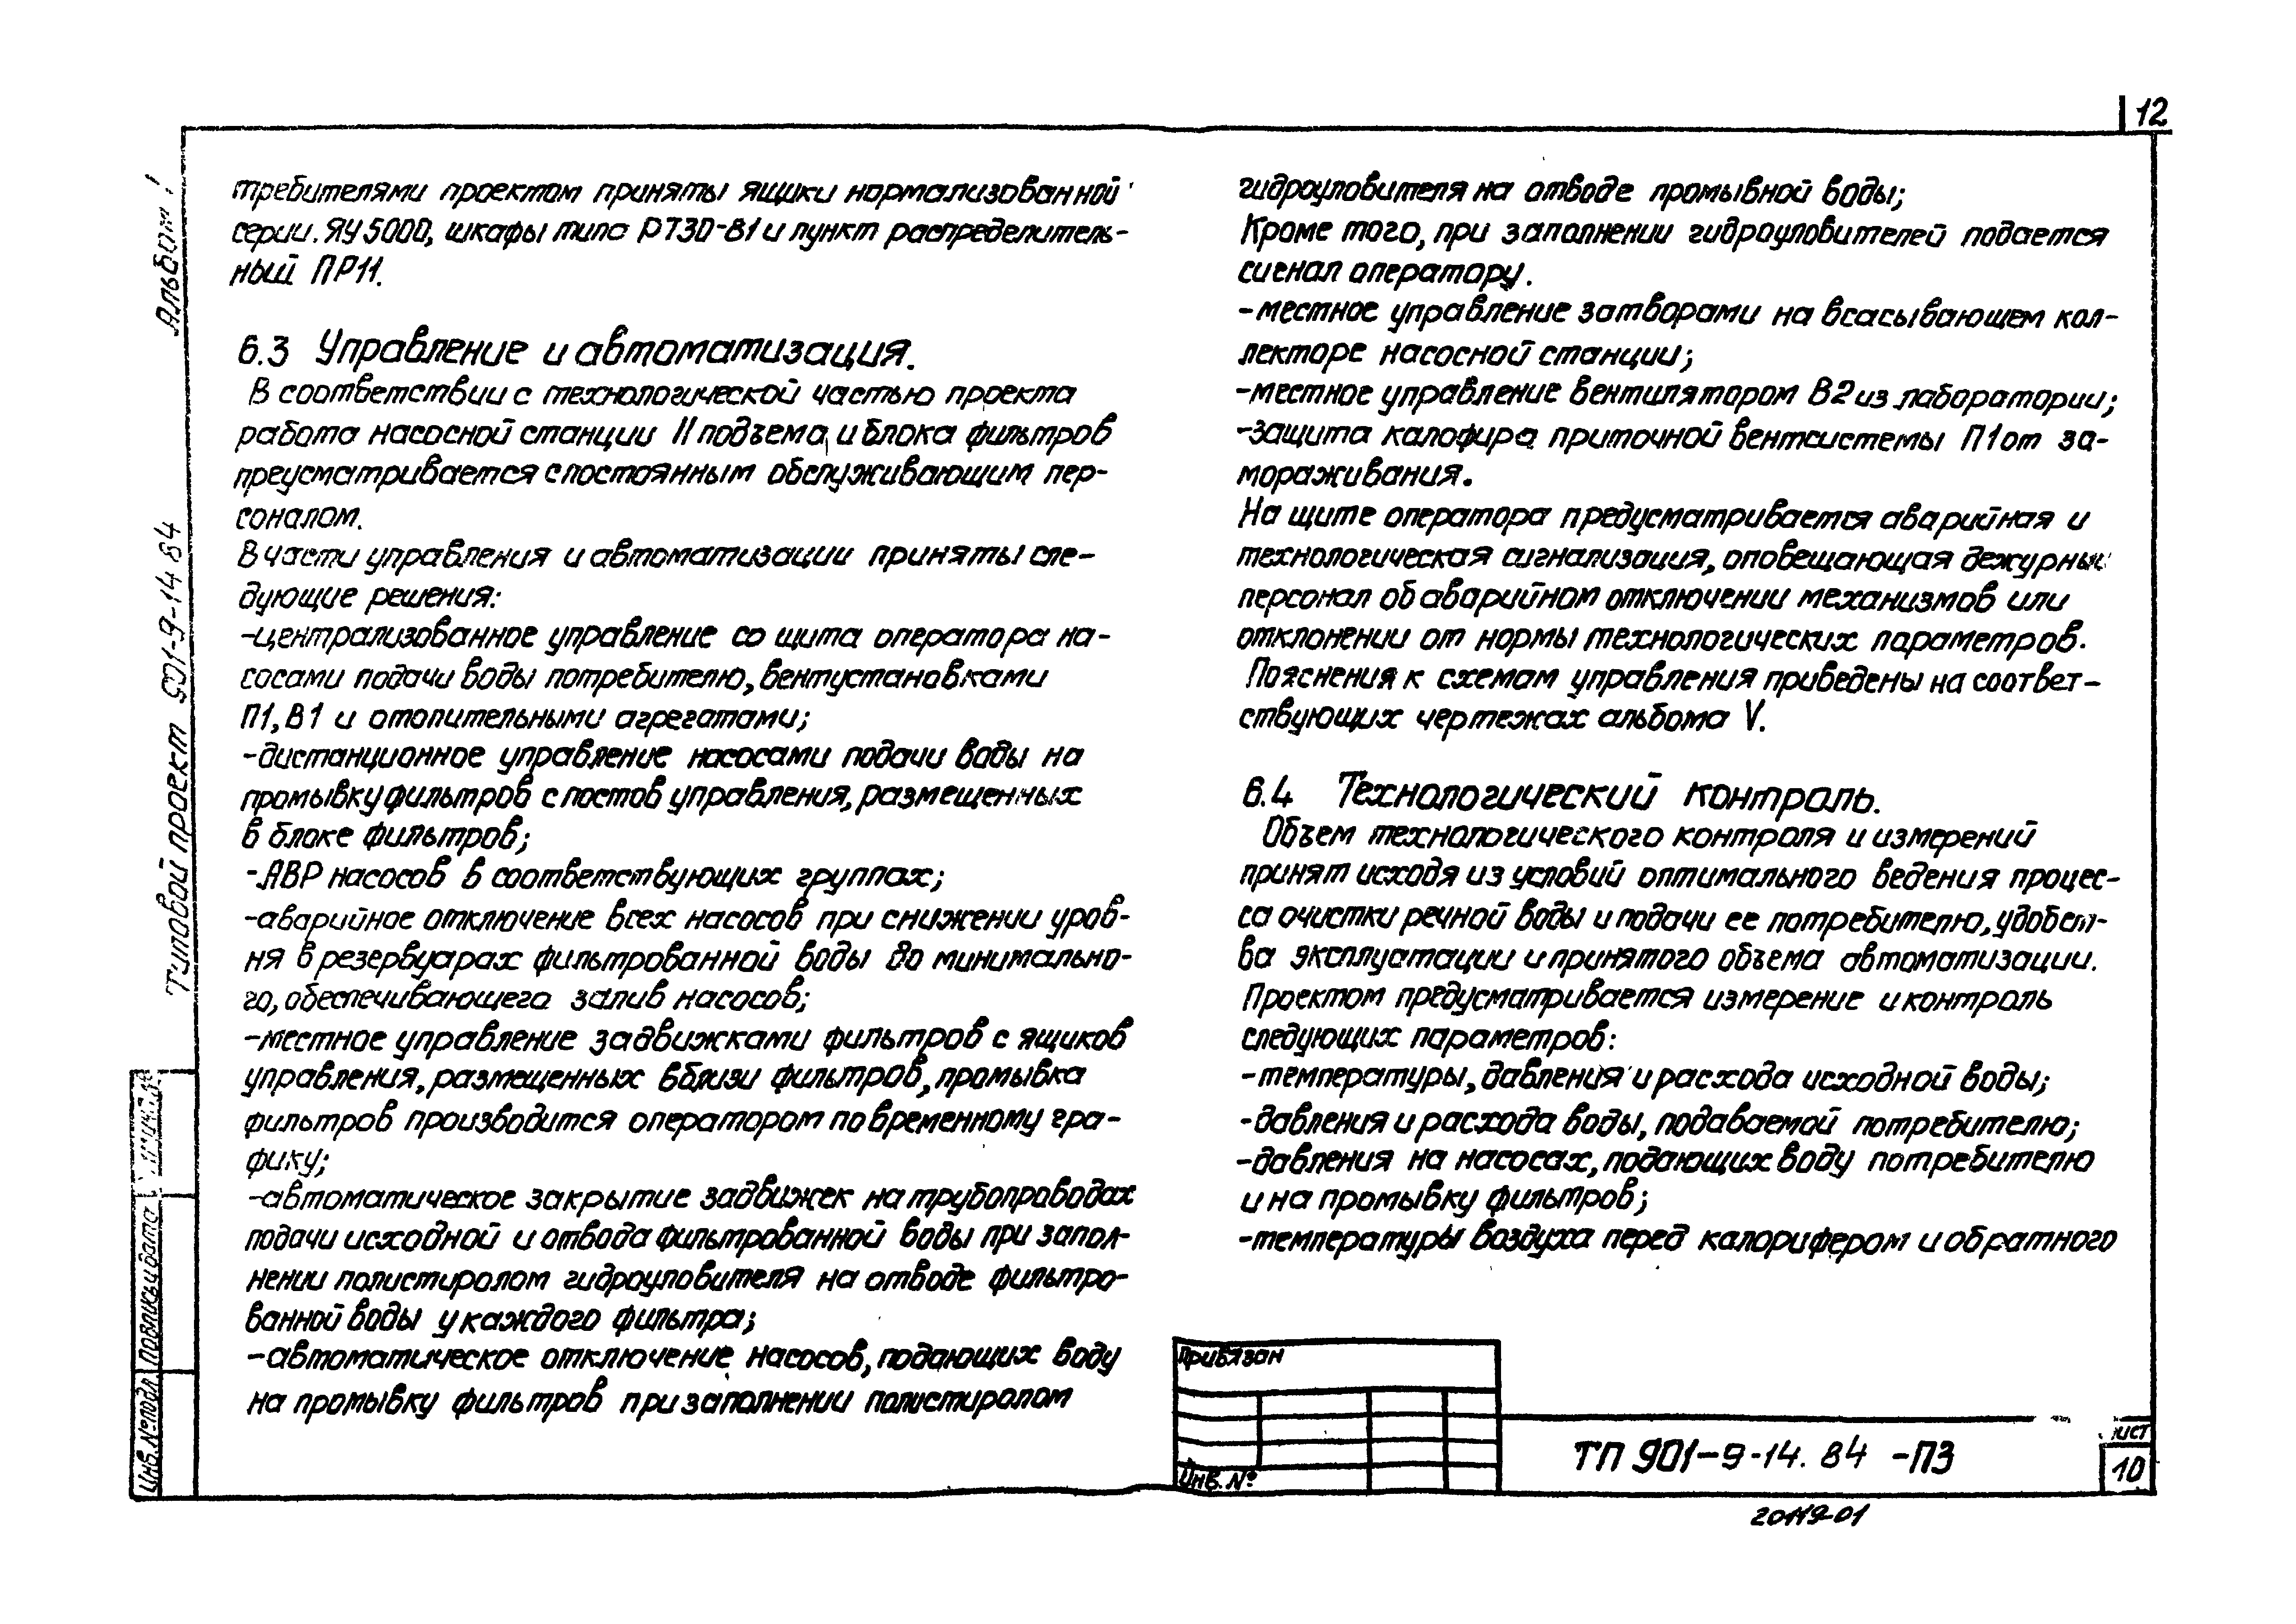 12
Альбом I
Типовой проект 901-9-14.84
требителями проектом приняты ящики нормализованной
серии. ЯУ5000, шкафы типа РТ30-81 и пункт распределитель-
ный ПР11.
6.3 Управление и автоматизация.
В соответствии с технологической частью проекта
работа насосной станции II подъема, и блока фильтров
преусматривается с постоянным обслуживающим пер-
соналом.
В части управления и автоматизации приняты сле-
дующие решения:
-централизованное управление со щита оператора на-
сосами подачи воды потребителю, вентустановками
П1, В1 и отопительными агрегатами;
-дистанционное управление насосами подачи воды на
промывку фильтров с постов управления, размещенных
в блоке фильтров;
-АВР насосов в соответствующих группах;
-аварийное отключение всех насосов при снижении уров-
ня в резервуарах фильтрованной воды до минимально-
го, обеспечивающего залив насосов;
-местное управление задвижками фильтров с ящиков
управления, размещенных вблизи фильтров, промывка
фильтров производится оператором по временному гра-
фику;
-автоматическое закрытие задвижек на трубопроводах
подачи исходной и отвода фильтрованной воды при запол-
нении полистиролом гидроуловителя на отводе фильтро-
ванной воды у каждого фильтра;
-автоматическое отключение насосов, подающих воду
на промывку фильтров при заполнении полистиролом
гидроуловителя на отводе промывной воды;
Кроме того, при заполнении гидроуловителей подается
сигнал оператору.
-местное управление затворами на всасывающем кол-
лекторе насосной станции;
-местное управление вентилятором В2 из лаборатории;
-защита калофира приточной вентсистемы П1 от за-
мораживания.
На щите оператора предусматривается аварийная и
технологическая сигнализация, оповещающая дежурный
персонал об аварийном отключении механизмов или
отклонении от нормы технологических параметров.
Пояснения к схемам управления приведены на соответ-
ствующих чертежах альбома V.
6.4 Технологический контроль.
Объем технологического контроля и измерений
принят исходя из условий оптимального ведения процес-
са очистки речной воды и подачи ее потребителю, удобст-
ва эксплуатации и принятого объема автоматизации.
Проектом предусматривается измерение и контроль
следующих параметров:
-температуры, давления и расхода исходной воды;
-давления и расхода воды, подаваемой потребителю;
-давления на насосах, подающих воду потребителю
и на промывку фильтров;
-температуры воздуха перед калорифером и обратного
Привязан
Инв. №
ТП 901-9-14.84 -ПЗ
лист
10
20119-01
Инв. № подл.
Подпись и дата